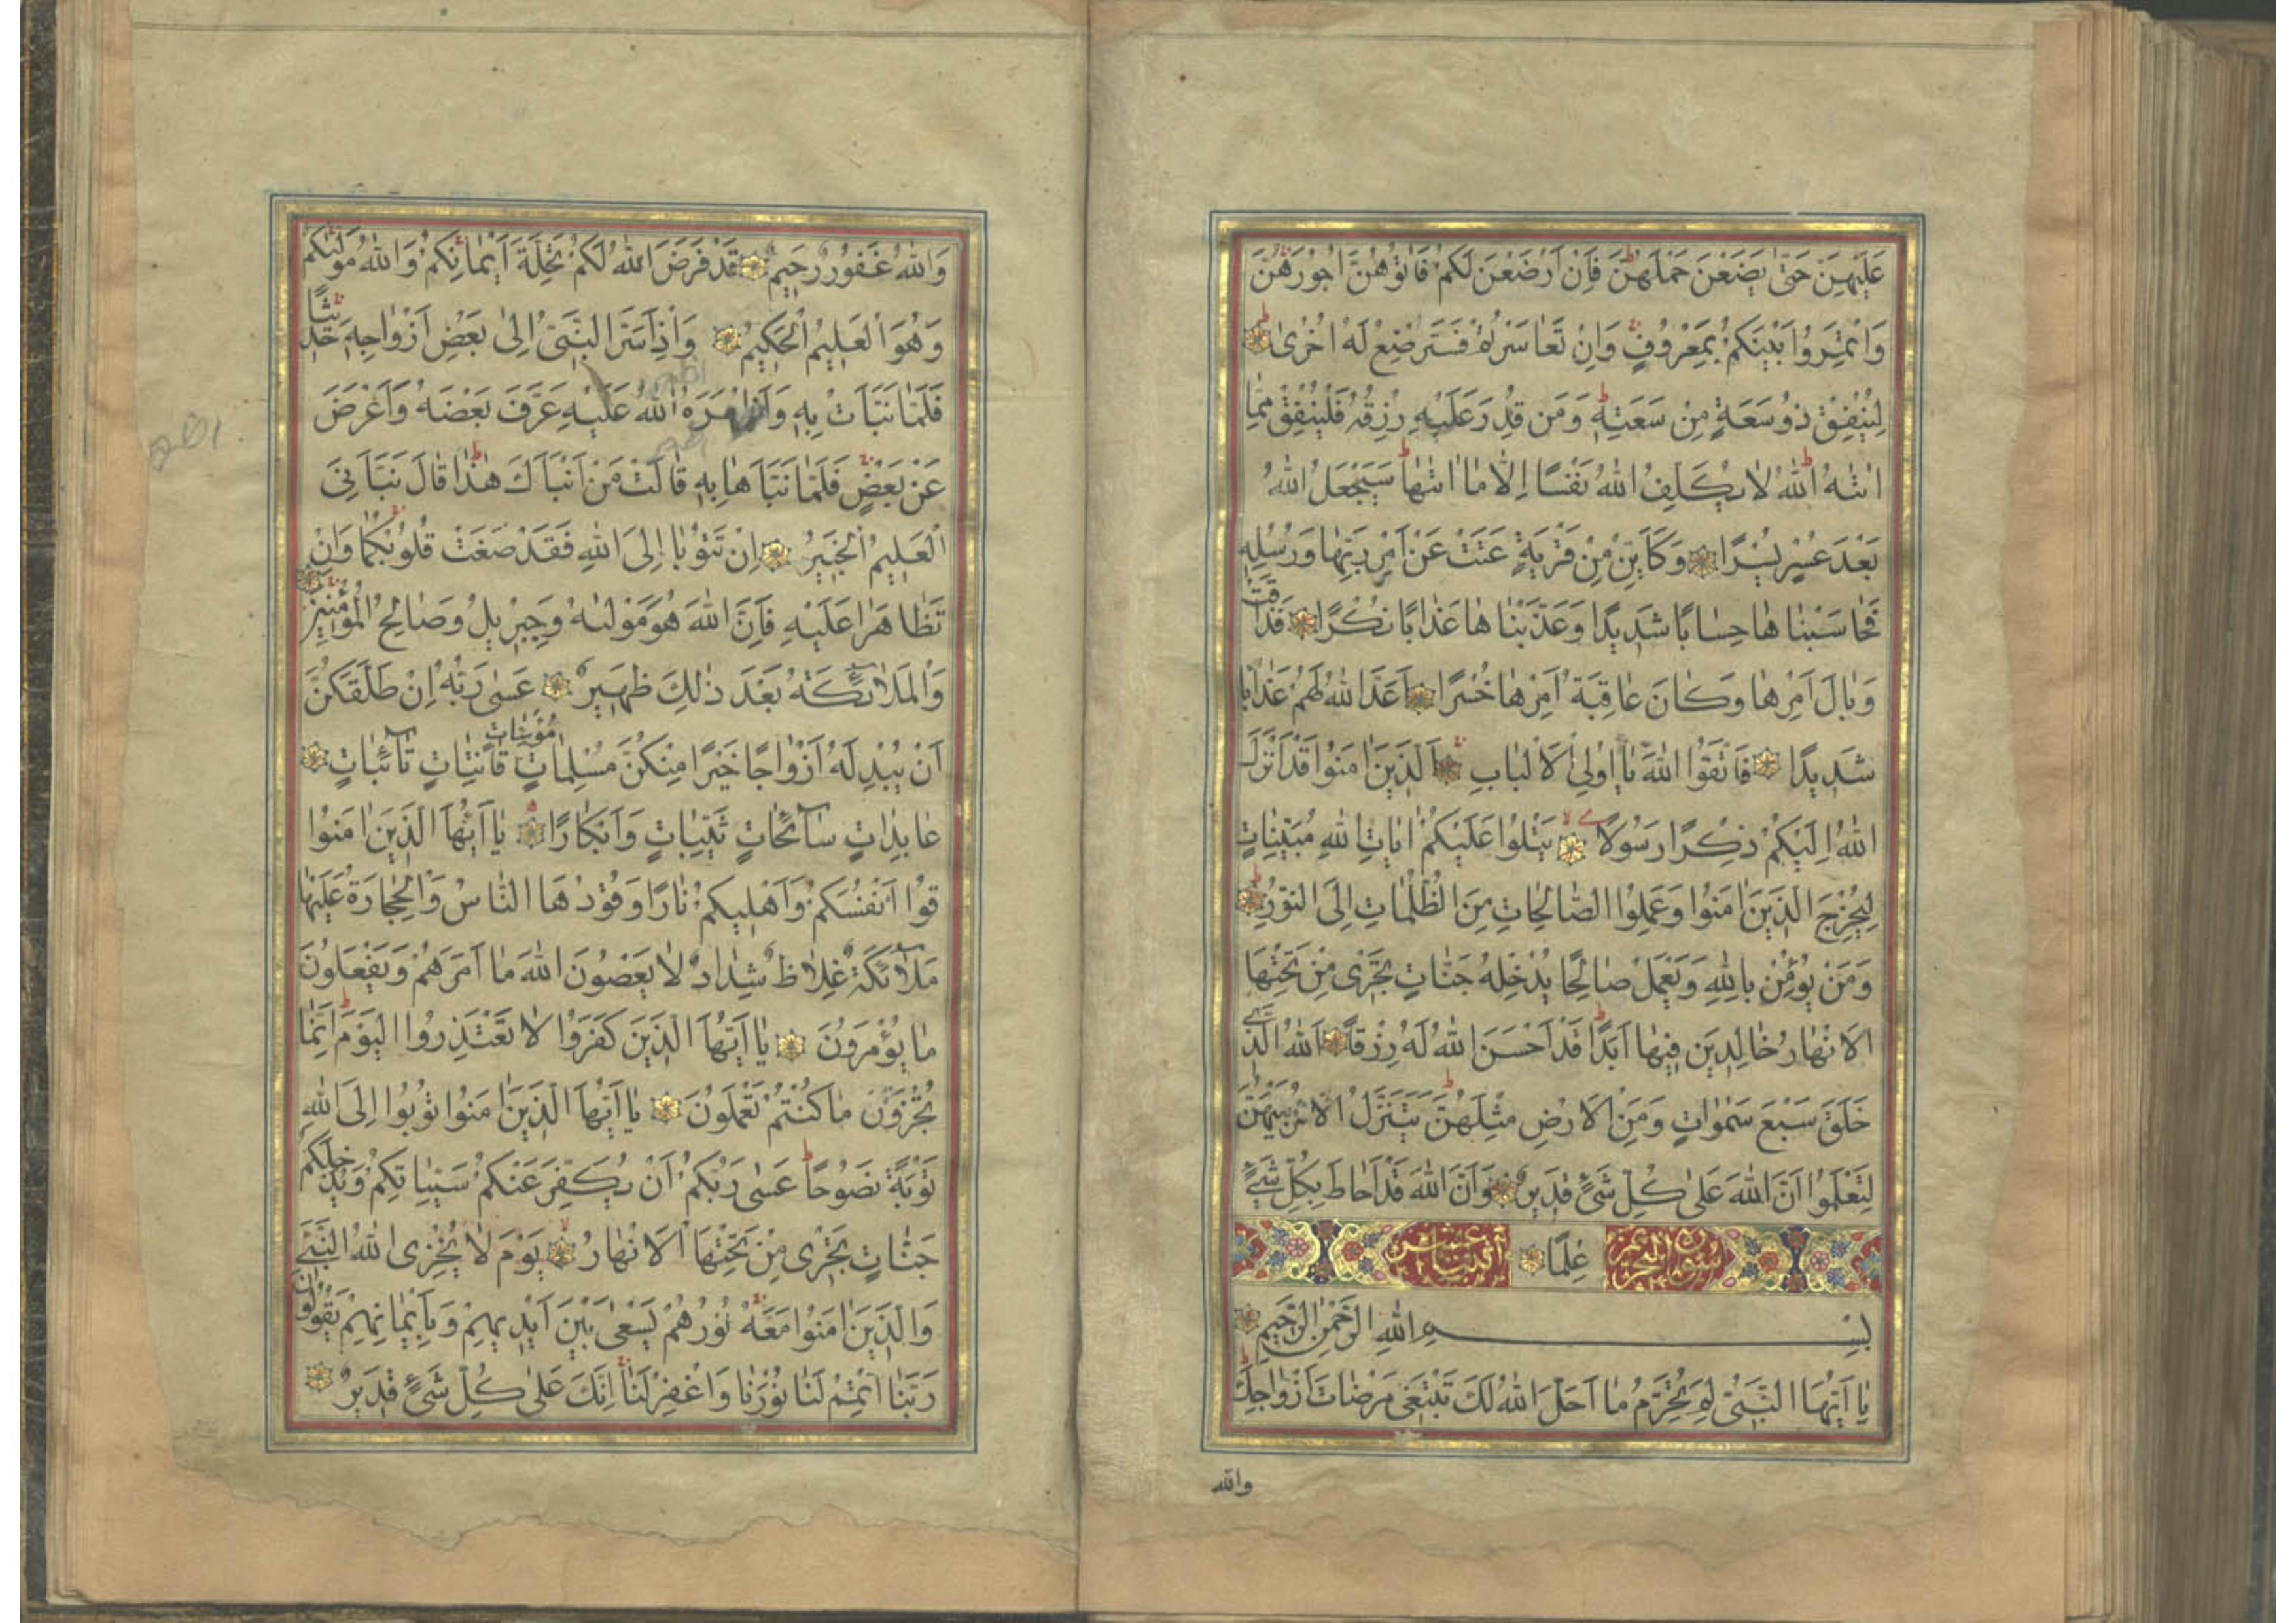 عَلَيْهِنَّ حَتّٰى يَضَعْنَ حَمْلَهُنَّ فَاِنْ اَرْضَعْنَ لَكُمْ فَاٰتُوهُنَّ اُجُورَهُنَّ
وَاْتَمِرُوا بَيْنَكُمْ بِمَعْرُوفٍ وَاِنْ تَعَاسَرْتُمْ فَسَتُرْضِعُ لَهُ اُخْرٰى
لِيُنْفِقْ ذُو سَعَةٍ مِنْ سَعَتِهِ وَمَن قُدِرَ عَلَيْهِ رِزْقُهُ فَلْيُنْفِقْ مِمَّا
اٰتٰهُ اللّٰهُ لَا يُكَلِّفُ اللّٰهُ نَفْسًا اِلَّا مَا اٰتٰهَا سَيَجْعَلُ اللّٰهُ
بَعْدَ عُسْرٍ يُسْرًا وَكَاَيِّنْ مِنْ قَرْيَةٍ عَتَتْ عَنْ اَمْرِ رَبِّهَا وَرُسُلِهِ
فَحَاسَبْنَاهَا حِسَابًا شَدِيدًا وَعَذَّبْنَاهَا عَذَابًا نُكْرًا فَذَاقَتْ
وَبَالَ اَمْرِهَا وَكَانَ عَاقِبَةُ اَمْرِهَا خُسْرًا اَعَدَّ اللّٰهُ لَهُمْ عَذَابًا
شَدِيدًا فَاتَّقُوا اللّٰهَ يَا اُولِى الْاَلْبَابِ اَلَّذِينَ اٰمَنُوا قَدْ اَنْزَلَ
اللّٰهُ اِلَيْكُمْ ذِكْرًا رَسُولًا يَتْلُوا عَلَيْكُمْ اٰيَاتِ اللّٰهِ مُبَيِّنَاتٍ
لِيُخْرِجَ الَّذِينَ اٰمَنُوا وَعَمِلُوا الصَّالِحَاتِ مِنَ الظُّلُمَاتِ اِلَى النُّورِ
وَمَنْ يُؤْمِنْ بِاللّٰهِ وَيَعْمَلْ صَالِحًا يُدْخِلْهُ جَنَّاتٍ تَجْرِى مِنْ تَحْتِهَا
الْاَنْهَارُ خَالِدِينَ فِيهَا اَبَدًا قَدْ اَحْسَنَ اللّٰهُ لَهُ رِزْقًا اَللّٰهُ الَّذِى
خَلَقَ سَبْعَ سَمٰوَاتٍ وَمِنَ الْاَرْضِ مِثْلَهُنَّ يَتَنَزَّلُ الْاَمْرُ بَيْنَهُنَّ
لِتَعْلَمُوا اَنَّ اللّٰهَ عَلٰى كُلِّ شَىْءٍ قَدِيرٌ وَاَنَّ اللّٰهَ قَدْ اَحَاطَ بِكُلِّ شَىْءٍ
سورة التحريم عِلْمًا اثنتا عشر
بِسْمِ اللّٰهِ الرَّحْمٰنِ الرَّحِيمِ
يَا اَيُّهَا النَّبِىُّ لِمَ تُحَرِّمُ مَا اَحَلَّ اللّٰهُ لَكَ تَبْتَغِى مَرْضَاتَ اَزْوَاجِكَ
والله
وَاللّٰهُ غَفُورٌ رَحِيمٌ قَدْ فَرَضَ اللّٰهُ لَكُمْ تَحِلَّةَ اَيْمَانِكُمْ وَاللّٰهُ مَوْلٰيكُمْ
وَهُوَ الْعَلِيمُ الْحَكِيمُ وَاِذْ اَسَرَّ النَّبِىُّ اِلٰى بَعْضِ اَزْوَاجِهِ حَدِيثًا
فَلَمَّا نَبَّاَتْ بِهِ وَاَظْهَرَهُ اللّٰهُ عَلَيْهِ عَرَّفَ بَعْضَهُ وَاَعْرَضَ
عَنْ بَعْضٍ فَلَمَّا نَبَّاَهَا بِهِ قَالَتْ مَنْ اَنْبَاَكَ هٰذَا قَالَ نَبَّاَنِىَ
الْعَلِيمُ الْخَبِيرُ اِنْ تَتُوبَا اِلَى اللّٰهِ فَقَدْ صَغَتْ قُلُوبُكُمَا وَاِنْ
تَظَاهَرَا عَلَيْهِ فَاِنَّ اللّٰهَ هُوَ مَوْلٰيهُ وَجِبْرِيلُ وَصَالِحُ الْمُؤْمِنِينَ
وَالْمَلٰائِكَةُ بَعْدَ ذٰلِكَ ظَهِيرٌ عَسٰى رَبُّهُ اِنْ طَلَّقَكُنَّ
اَنْ يُبْدِلَهُ اَزْوَاجًا خَيْرًا مِنْكُنَّ مُسْلِمَاتٍ مُؤْمِنَاتٍ قَانِتَاتٍ تَائِبَاتٍ
عَابِدَاتٍ سَائِحَاتٍ ثَيِّبَاتٍ وَاَبْكَارًا يَا اَيُّهَا الَّذِينَ اٰمَنُوا
قُوا اَنْفُسَكُمْ وَاَهْلِيكُمْ نَارًا وَقُودُهَا النَّاسُ وَالْحِجَارَةُ عَلَيْهَا
مَلٰائِكَةٌ غِلَاظٌ شِدَادٌ لَا يَعْصُونَ اللّٰهَ مَا اَمَرَهُمْ وَيَفْعَلُونَ
مَا يُؤْمَرُونَ يَا اَيُّهَا الَّذِينَ كَفَرُوا لَا تَعْتَذِرُوا الْيَوْمَ اِنَّمَا
تُجْزَوْنَ مَا كُنْتُمْ تَعْمَلُونَ يَا اَيُّهَا الَّذِينَ اٰمَنُوا تُوبُوا اِلَى اللّٰهِ
تَوْبَةً نَصُوحًا عَسٰى رَبُّكُمْ اَنْ يُكَفِّرَ عَنْكُمْ سَيِّاٰتِكُمْ وَيُدْخِلَكُمْ
جَنَّاتٍ تَجْرِى مِنْ تَحْتِهَا الْاَنْهَارُ يَوْمَ لَا يُخْزِى اللّٰهُ النَّبِىَّ
وَالَّذِينَ اٰمَنُوا مَعَهُ نُورُهُمْ يَسْعٰى بَيْنَ اَيْدِيهِمْ وَبِاَيْمَانِهِمْ يَقُولُونَ
رَبَّنَا اَتْمِمْ لَنَا نُورَنَا وَاغْفِرْ لَنَا اِنَّكَ عَلٰى كُلِّ شَىْءٍ قَدِيرٌ